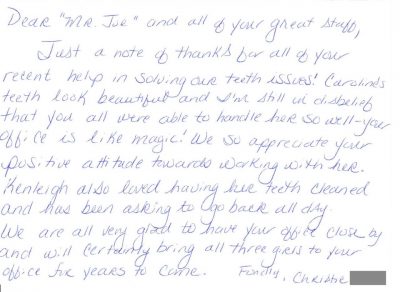 Dear "Mr. Joe" and all of your great staff,
Just a note of thanks for all of your
recent help in solving our teeth issues! Caroline's
teeth look beautiful and I'm still in disbelief
that you all were able to handle her so well-your
office is like magic! We so appreciate your
positive attitude towards working with her.
Kenleigh also loved having her teeth cleaned
and has been asking to go back all day.
We are all very glad to have your office close by
and will certainly bring all three girls to your
office for years to come. Fondly, Christie